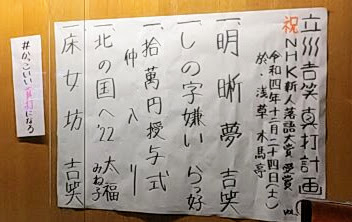 立川吉笑真打計画
祝 NHK新人落語大賞受賞
令和四年十二月二十四日(土)
於、浅草 木馬亭
一、明晰夢 吉笑
一、しの字嫌い らっ好
一、拾萬円授与式
仲入り
一、北の国へ'22 太福 みね子
一、床女坊 吉笑
#かっこいい真打になる